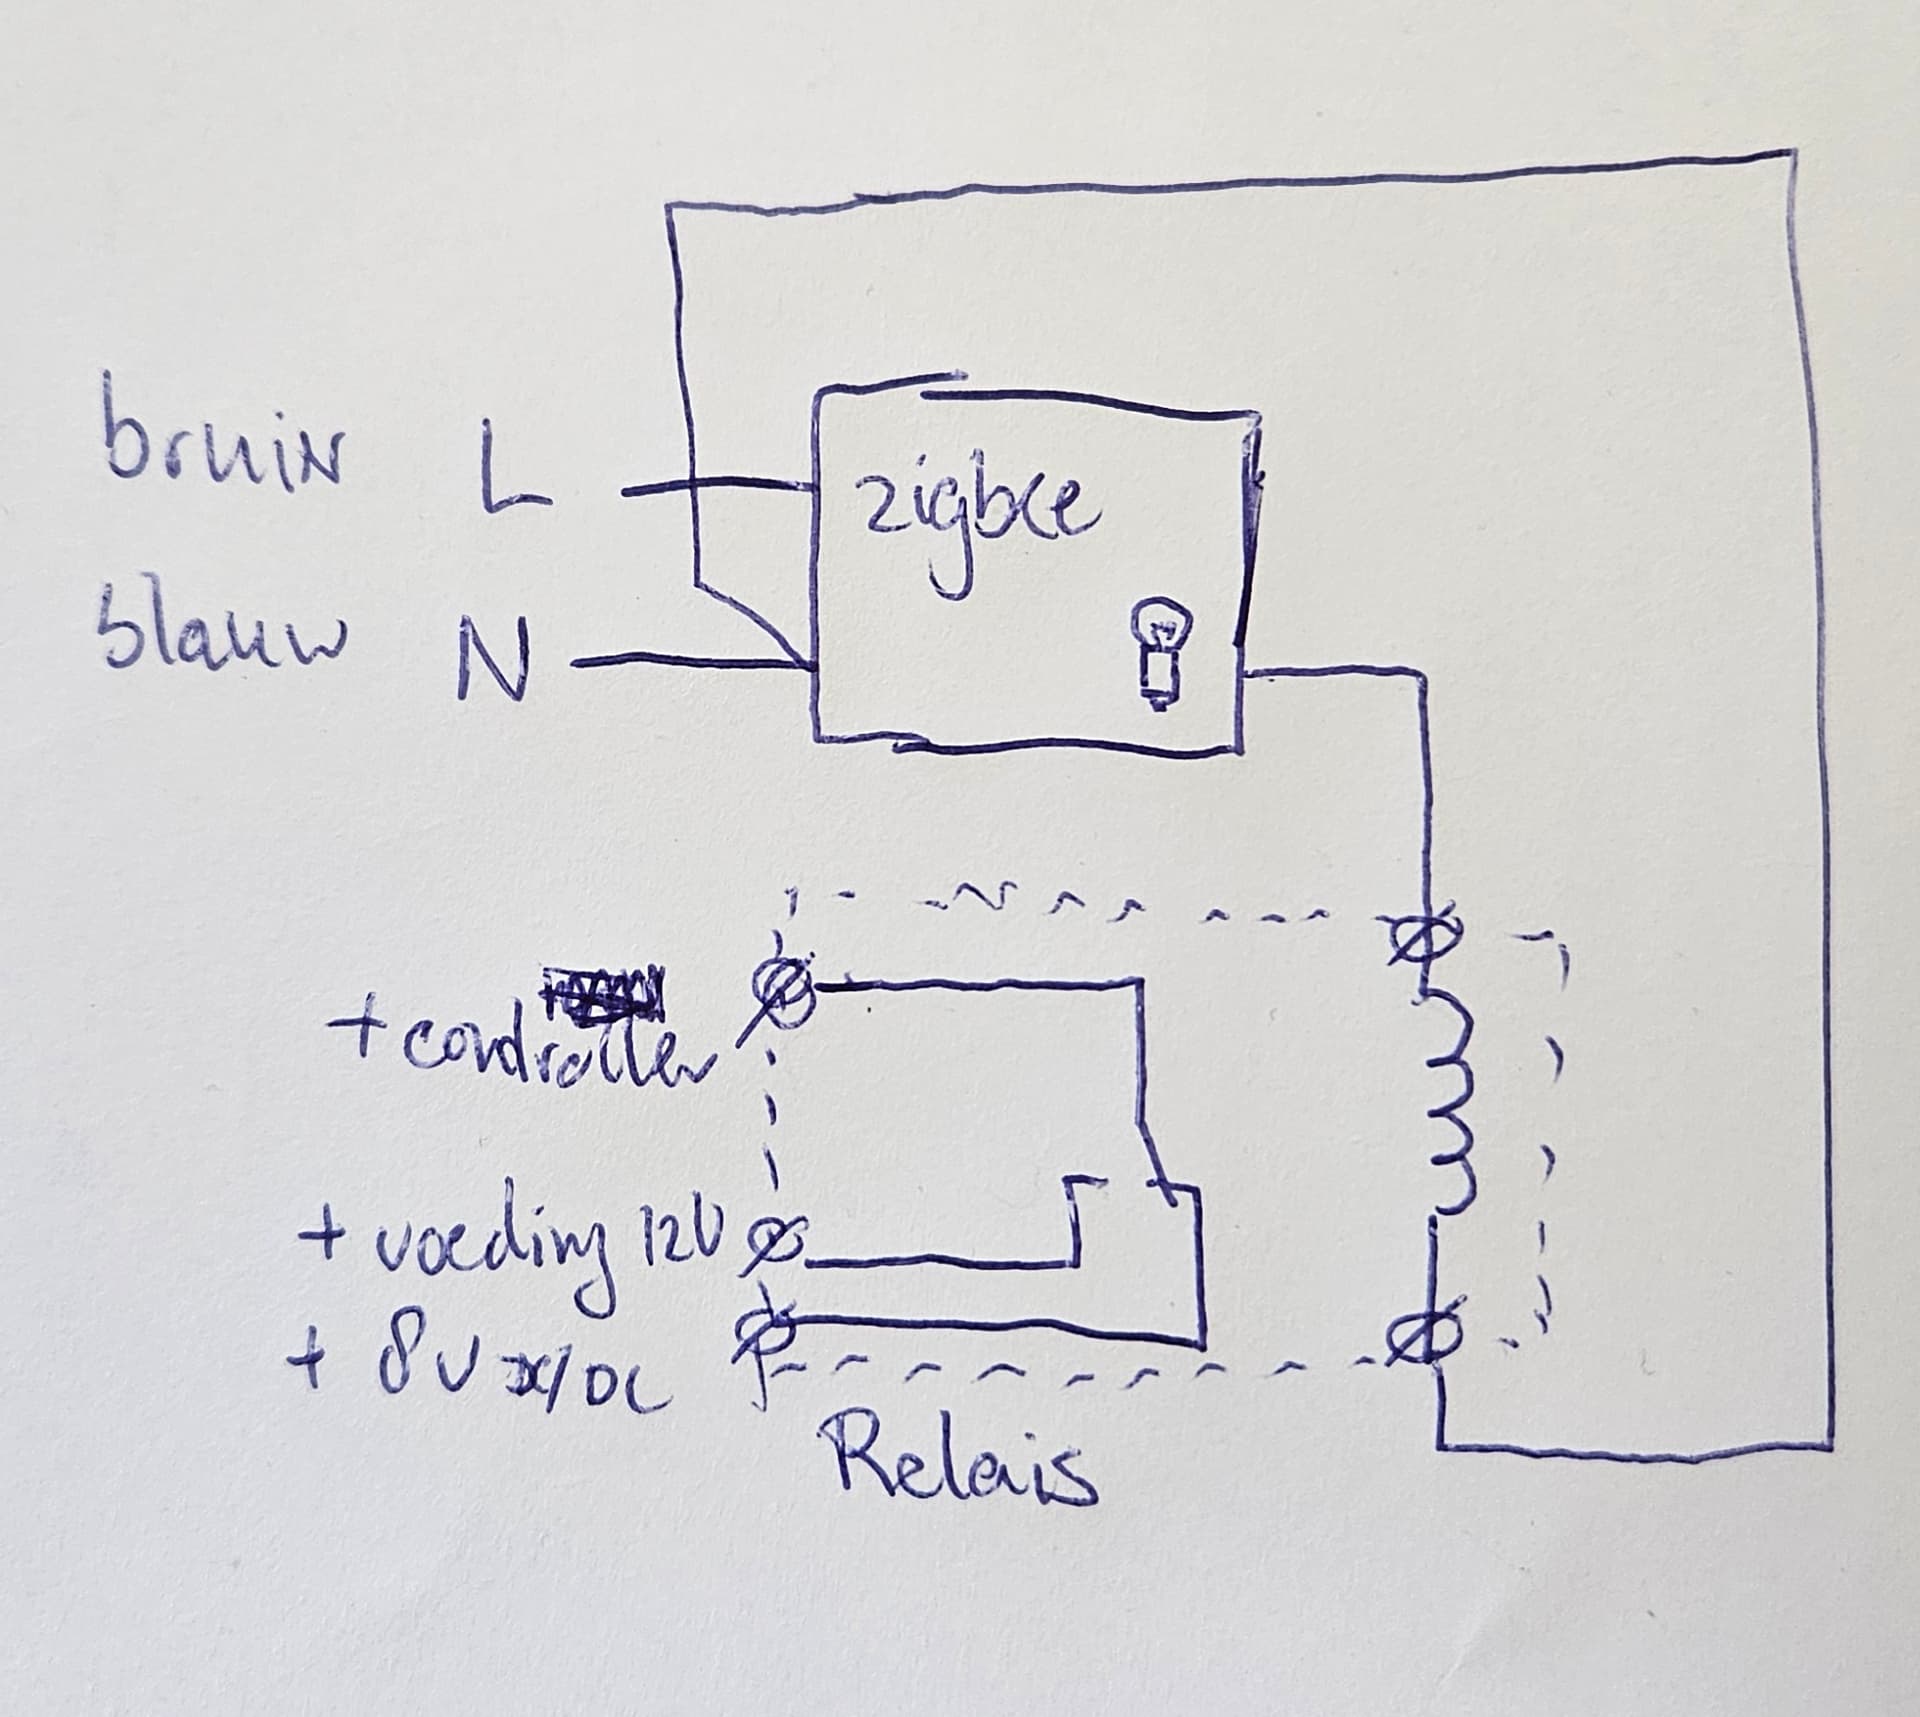 bruin L
zigbee
blauw N
+ controller
+ voeding 12V
+ 8V DC
Relais